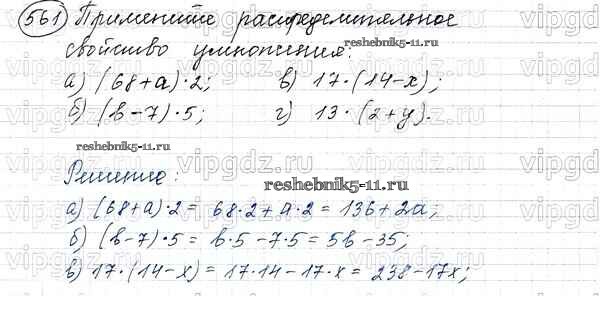 561 Примените распределительное
свойство умножения:
reshebnik5-11.ru
а) (68+а)·2; в) 17·(14-х);
б) (в-7)·5; г) 13·(2+у).
reshebnik5-11.ru
vipgdz.ru
Решение:
reshebnik5-11.ru
а) (68+а)·2 = 68·2+а·2 = 136+2а;
б) (в-7)·5 = в·5-7·5 = 5в-35;
в) 17·(14-х) = 17·14-17·х = 238-17х;